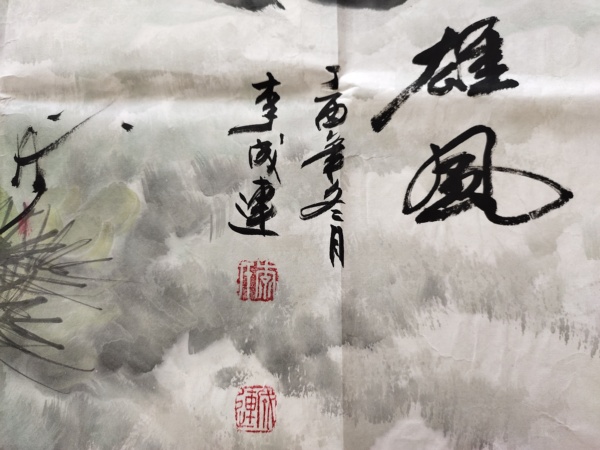 雄風
丁酉年冬月
李成連
成連